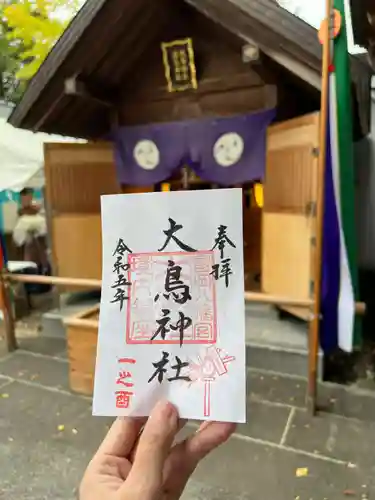 奉拝
大鳥神社
令和五年
一之酉